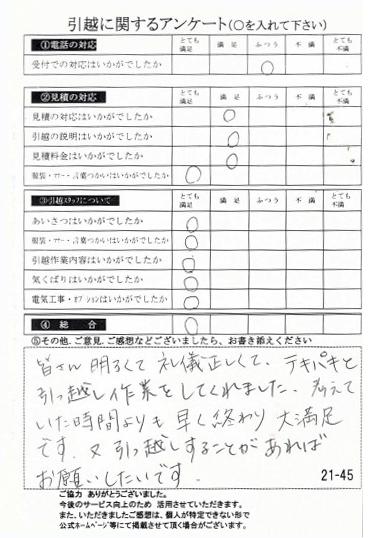 引越に関するアンケート(○を入れて下さい)
①電話の対応 とても満足 満足 ふつう 不満 とても不満
受付での対応はいかがでしたか ○
②見積の対応 とても満足 満足 ふつう 不満 とても不満
見積の対応はいかがでしたか ○
引越の説明はいかがでしたか ○
見積料金はいかがでしたか ○
服装・マナー・言葉つかいはいかがでしたか ○
③引越スタッフについて とても満足 満足 ふつう 不満 とても不満
あいさつはいかがでしたか ○
服装・マナー・言葉つかいはいかがでしたか ○
引越作業内容はいかがでしたか ○
気くばりはいかがでしたか ○
電気工事・オプションはいかがでしたか ○
④ 総 合 ○
⑤その他、ご意見、ご感想などございましたら、お書き添えください
皆さん明るくて礼儀正しくて、テキパキと
引っ越し作業をしてくれました。考えて
いた時間よりも早く終わり大満足
です。又引っ越しすることがあれば
お願いしたいです。
21-45
ご協力 ありがとうございました。
今後のサービス向上のため 活用させていただきます。
また、いただきましたご感想は、個人が特定できない形で
公式ホームページ等にて掲載させて頂く場合がございます。